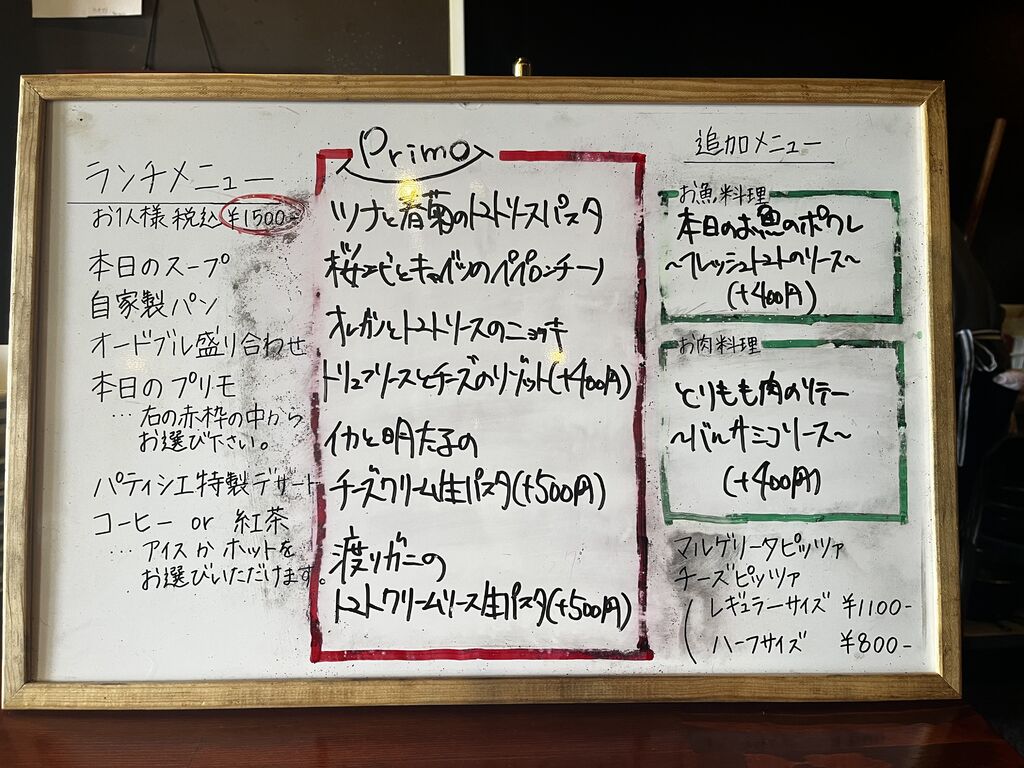 ランチメニュー
お1人様 税込 ¥1500-
本日のスープ
自家製パン
オードブル盛り合わせ
本日のプリモ
… 右の赤枠の中から
お選び下さい。
パティシエ特製デザート
コーヒー or 紅茶
… アイスかホットを
お選びいただけます。
Primo
ツナと春菊のトマトソースパスタ
桜エビとキャベツのペペロンチーノ
オレガノとトマトソースのニョッキ
トリュフソースとチーズのリゾット(+400円)
イカと明太子の
チーズクリーム生パスタ(+500円)
渡りガニの
トマトクリームソース生パスタ(+500円)
追加メニュー
お魚料理
本日のお魚のポワレ
〜フレッシュトマトのソース〜
(+400円)
お肉料理
とりもも肉のソテー
〜バルサミコソース〜
(+400円)
マルゲリータピッツァ
チーズピッツァ
( レギュラーサイズ ¥1100-
ハーフサイズ ¥800-